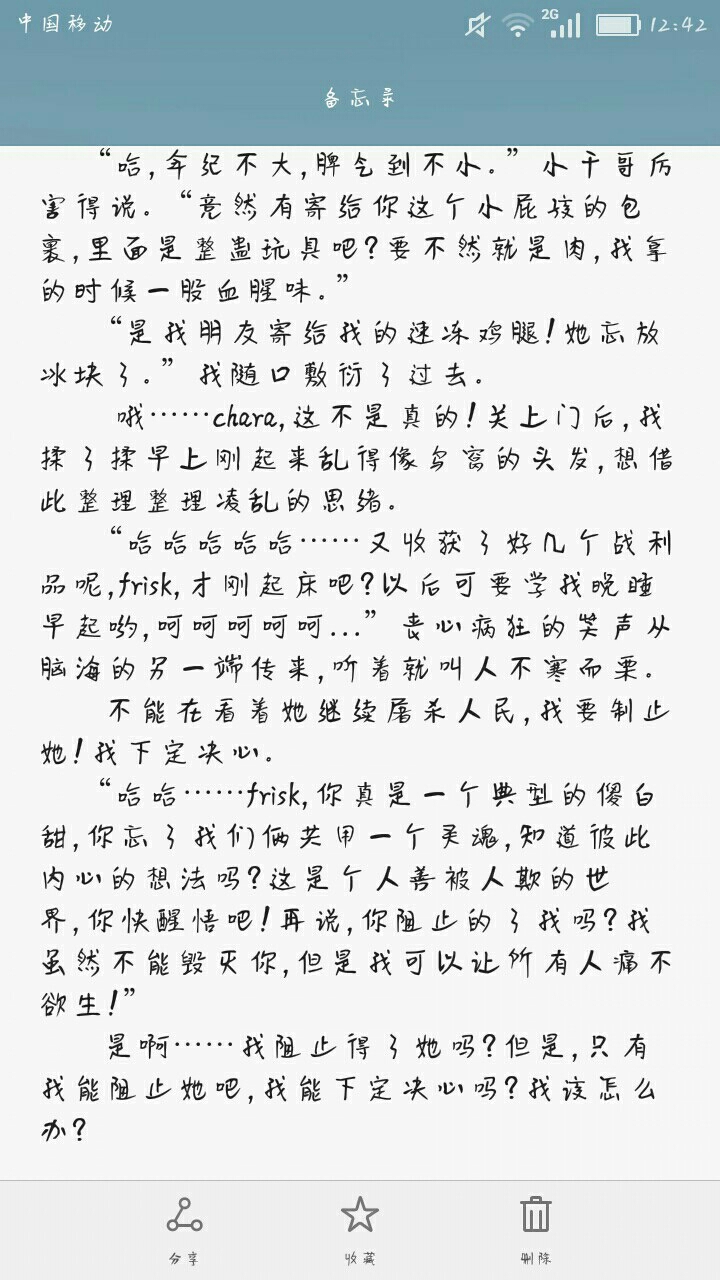 中国移动 2G 12:42
备忘录
“哈,年纪不大,脾气到不小。”小干哥厉
害得说。“竟然有寄给你这个小屁孩的包
裹,里面是整蛊玩具吧?要不然就是肉,我拿
的时候一股血腥味。”
“是我朋友寄给我的速冻鸡腿!她忘放
冰块了。”我随口敷衍了过去。
哦……chara,这不是真的!关上门后,我
揉了揉早上刚起来乱得像鸟窝的头发,想借
此整理整理凌乱的思绪。
“哈哈哈哈哈……又收获了好几个战利
品呢,frisk,才刚起床吧?以后可要学我晚睡
早起哟,呵呵呵呵呵...”丧心病狂的笑声从
脑海的另一端传来,听着就叫人不寒而栗。
不能在看着她继续屠杀人民,我要制止
她!我下定决心。
“哈哈……frisk,你真是一个典型的傻白
甜,你忘了我们俩共用一个灵魂,知道彼此
内心的想法吗?这是个人善被人欺的世
界,你快醒悟吧!再说,你阻止的了我吗?我
虽然不能毁灭你,但是我可以让所有人痛不
欲生!”
是啊……我阻止得了她吗?但是,只有
我能阻止她吧,我能下定决心吗?我该怎么
办?
分享 收藏 删除